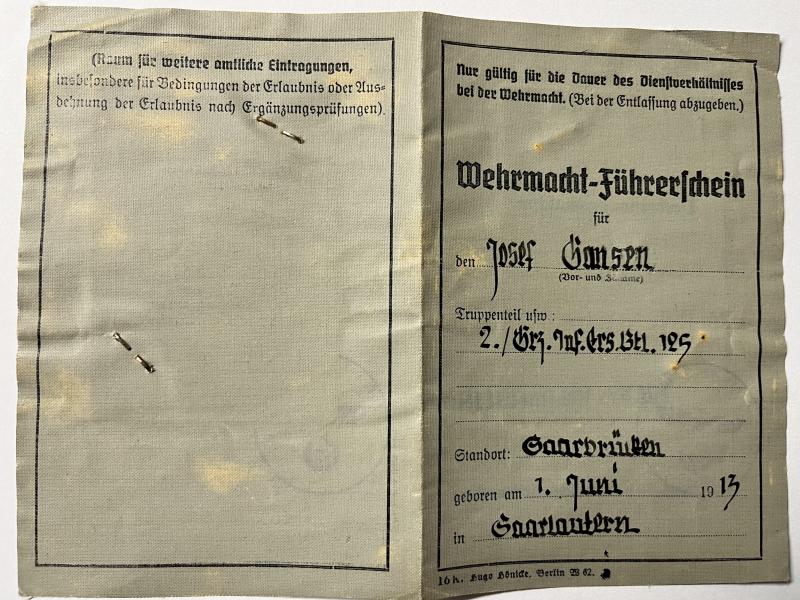 (Raum für weitere amtliche Eintragungen,
insbesondere für Bedingungen der Erlaubnis oder Aus-
dehnung der Erlaubnis nach Ergänzungsprüfungen).
Nur gültig für die Dauer des Dienstverhältnisses
bei der Wehrmacht. (Bei der Entlassung abzugeben.)
Wehrmacht-Führerschein
für
den Josef Gansen
(Vor- und Zuname)
Truppenteil usw.:
2./Grz. Inf. Ers. Btl. 125
Standort: Saarbrücken
geboren am 1. Juni 1913
in Saarlautern
16 K. Hugo Hönicke, Berlin W 62.